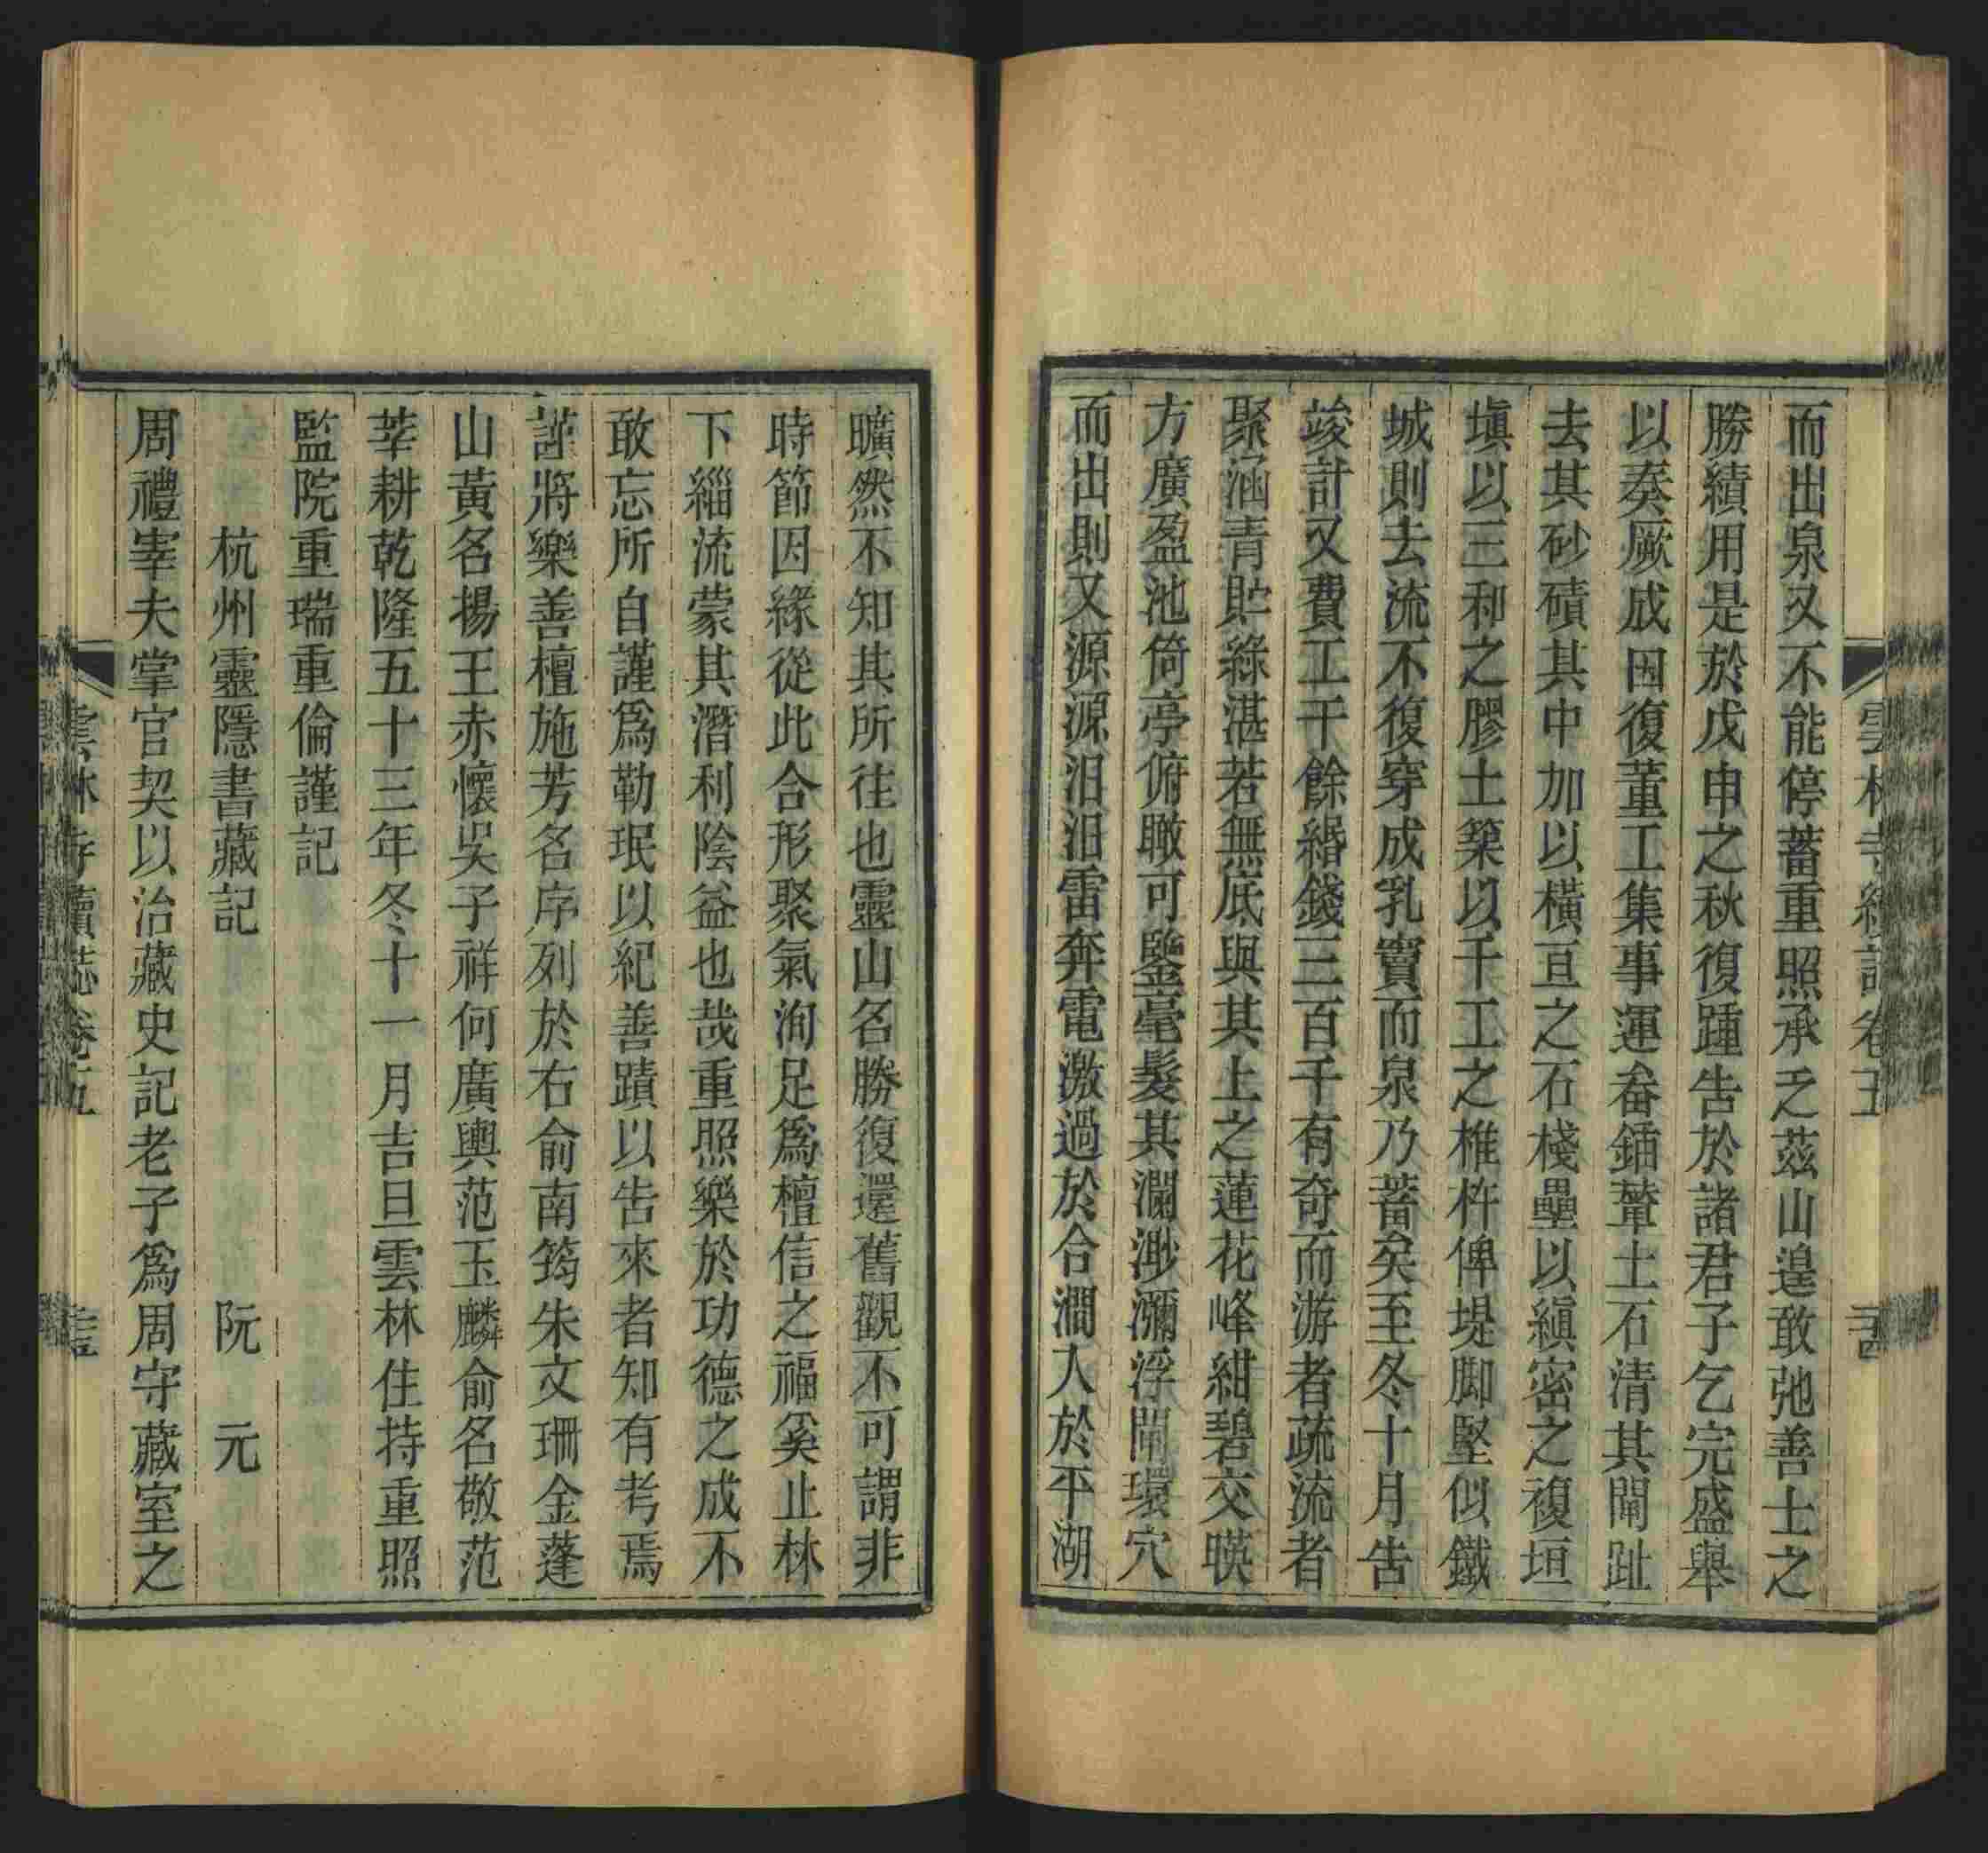 雲林寺續誌卷五
三古
而出泉又不能停蓄重照承乏茲山遑敢弛善士之
勝績用是於戊申之秋復踵告於諸君子乞完盛舉
以奏厥成因復董工集事運畚鍤輦土石清其閘趾
去其砂磧其中加以橫亘之石棧壘以縝密之複垣
塡以三和之膠土築以千工之椎杵俾堤脚堅似鐵
城則去流不復穿成乳竇而泉乃蓄矣至冬十月告
竣計又費工千餘緡錢三百千有奇而游者疏流者
聚涵青貯綠湛若無底與其上之蓮花峰紺碧交暎
方廣盈池倚亭俯瞰可鑒毫髮其瀾渺瀰浮閘環穴
而出則又源源汨汨雷奔電激過於合澗入於平湖
曠然不知其所往也靈山名勝復還舊觀不可謂非
時節因緣從此合形聚氣洵足爲檀信之福奚止林
下緇流蒙其潛利陰益也哉重照樂於功德之成不
敢忘所自謹爲勒珉以紀善蹟以告來者知有考焉
謹將樂善檀施芳名序列於右俞南筠朱文珊金蓬
山黃名揚王赤懷吳子祥何廣輿范玉麟俞名敬范
莘耕乾隆五十三年冬十一月吉旦雲林住持重照
監院重瑞重倫謹記
杭州靈隱書藏記　阮　元
周禮宰夫掌官契以治藏史記老子爲周守藏室之
雲林寺續誌卷五